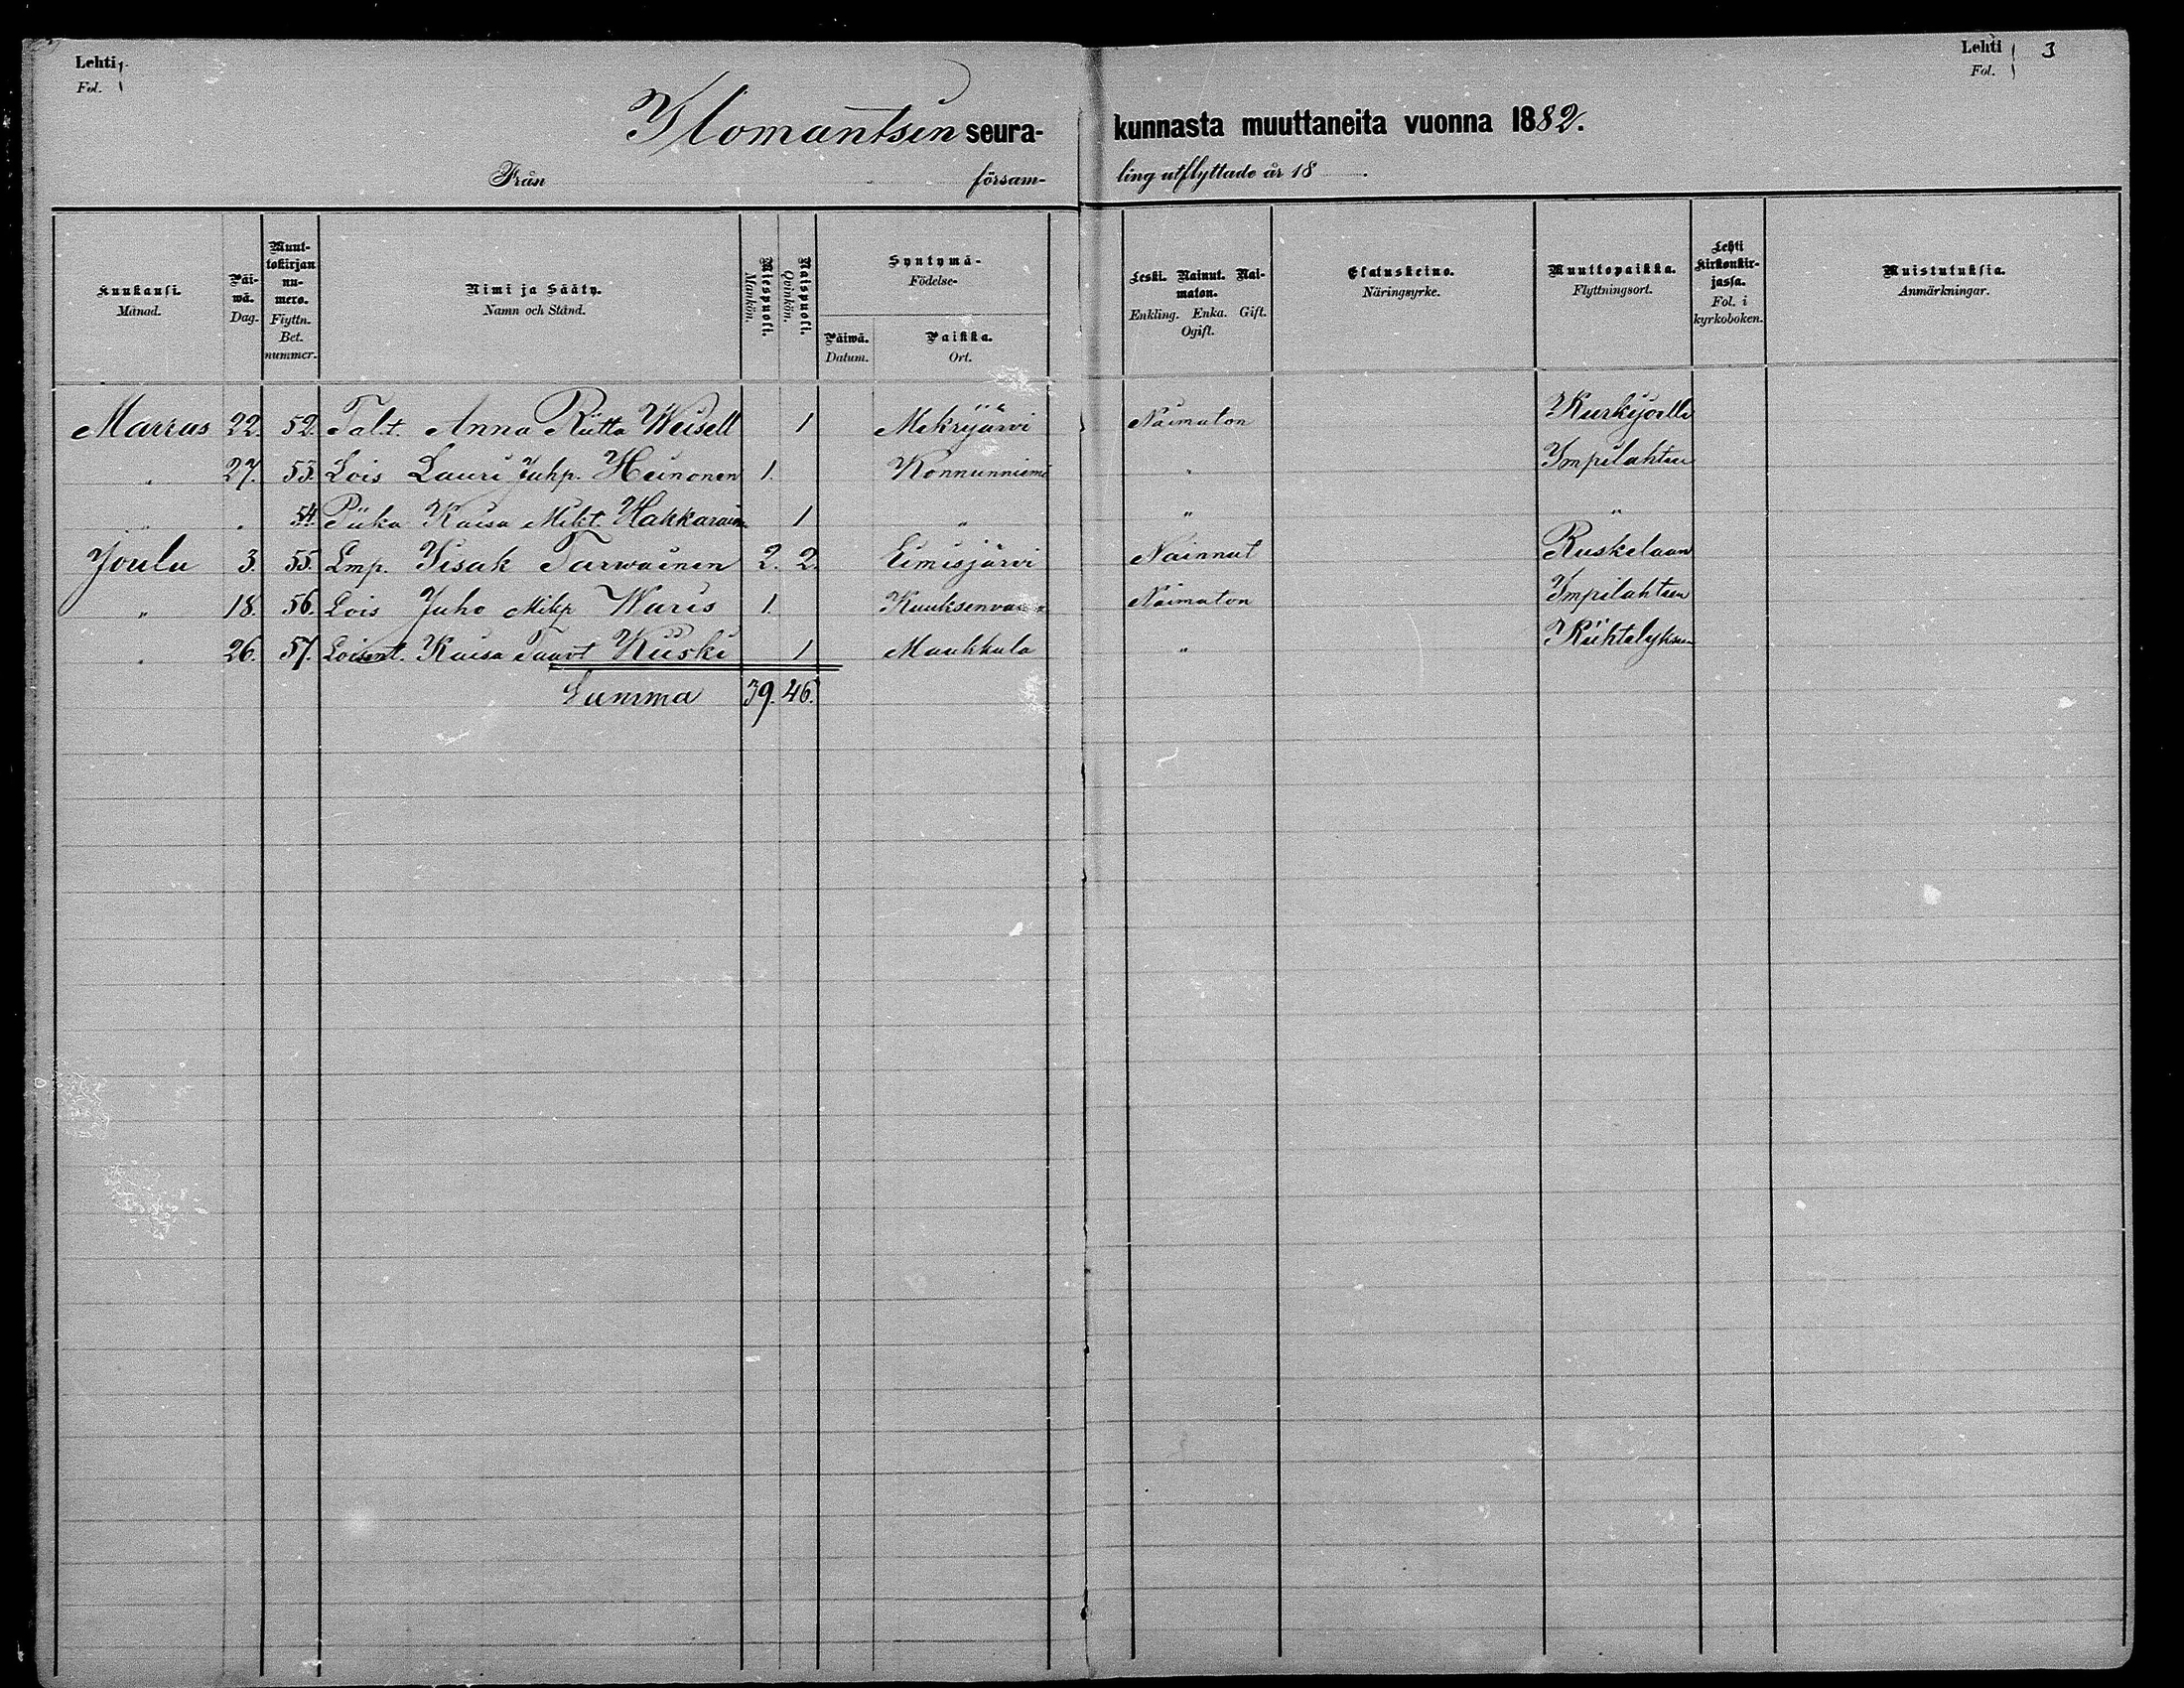 Lehti Fol.
Lehti Fol. 3
Ilomantsin seura- kunnasta muuttaneita vuonna 1882.
Från försam- ling utflyttade år 18
Kuukausi. Månad.
Päi- wä. Dag.
Muut- tokirjan nu- mero. Flyttn. Bet. nummer.
Nimi ja Sääty. Namn och Stånd.
Miespuoli. Mankön.
Naispuoli. Qvinkön.
Syntymä- Födelse-
Päiwä. Datum.
Paikka. Ort.
Leski. Nainut. Nai- maton. Enkling. Enka. Gift. Ogift.
Elatuskeino. Näringsyrke.
Muuttopaikka. Flyttningsort.
Lehti kirkonkir- jassa. Fol. i kyrkoboken.
Muistutuksia. Anmärkningar.
Marras 22. 52. Talt. Anna Riitta Weisell 1 Mekrijärvi Naimaton Kurkijoelle
" 27. 53. Lois Lauri Juhp. Heinonen 1. Konnunniemi " Impilahteen
" " 54. Piika Kaisa Mikt. Hakkarain 1 " " "
Joulu 3. 55. Lmp. Iisak Tarwainen 2. 2. Eimisjärvi Nainnut Ruskelaan
" 18. 56. Lois Juho Mikp Waris 1. Naimaton Impilahteen
" 26. 57. Loisent. Kaisa Taavt Kiiski 1 Maukkula " Kiihtelyksen
Summa 39. 46.